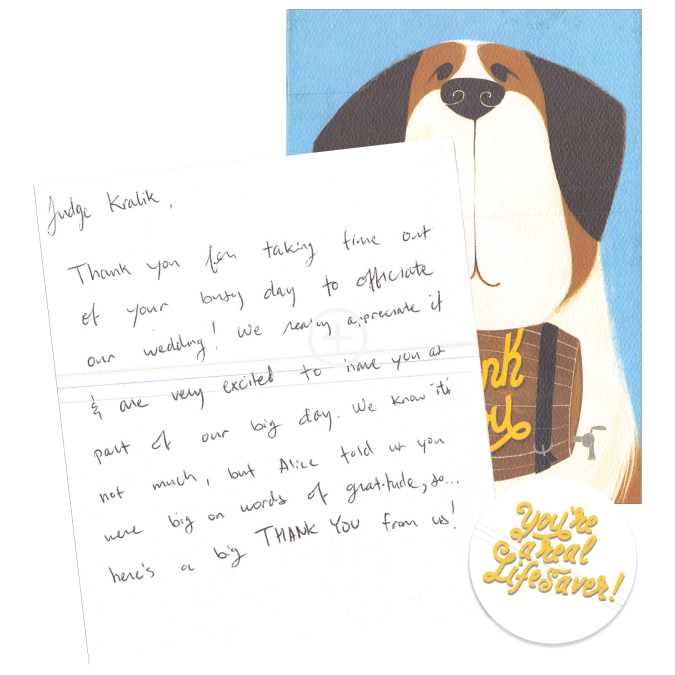 Judge Kralik,
Thank you for taking time out
of your busy day to officiate
our wedding! We really appreciate it
& are very excited to have you as
part of our big day. We know it's
not much, but Alice told us you
were big on words of gratitude, so...
here's a big THANK YOU from us!
nk
ou
You're
a real
Lifesaver!